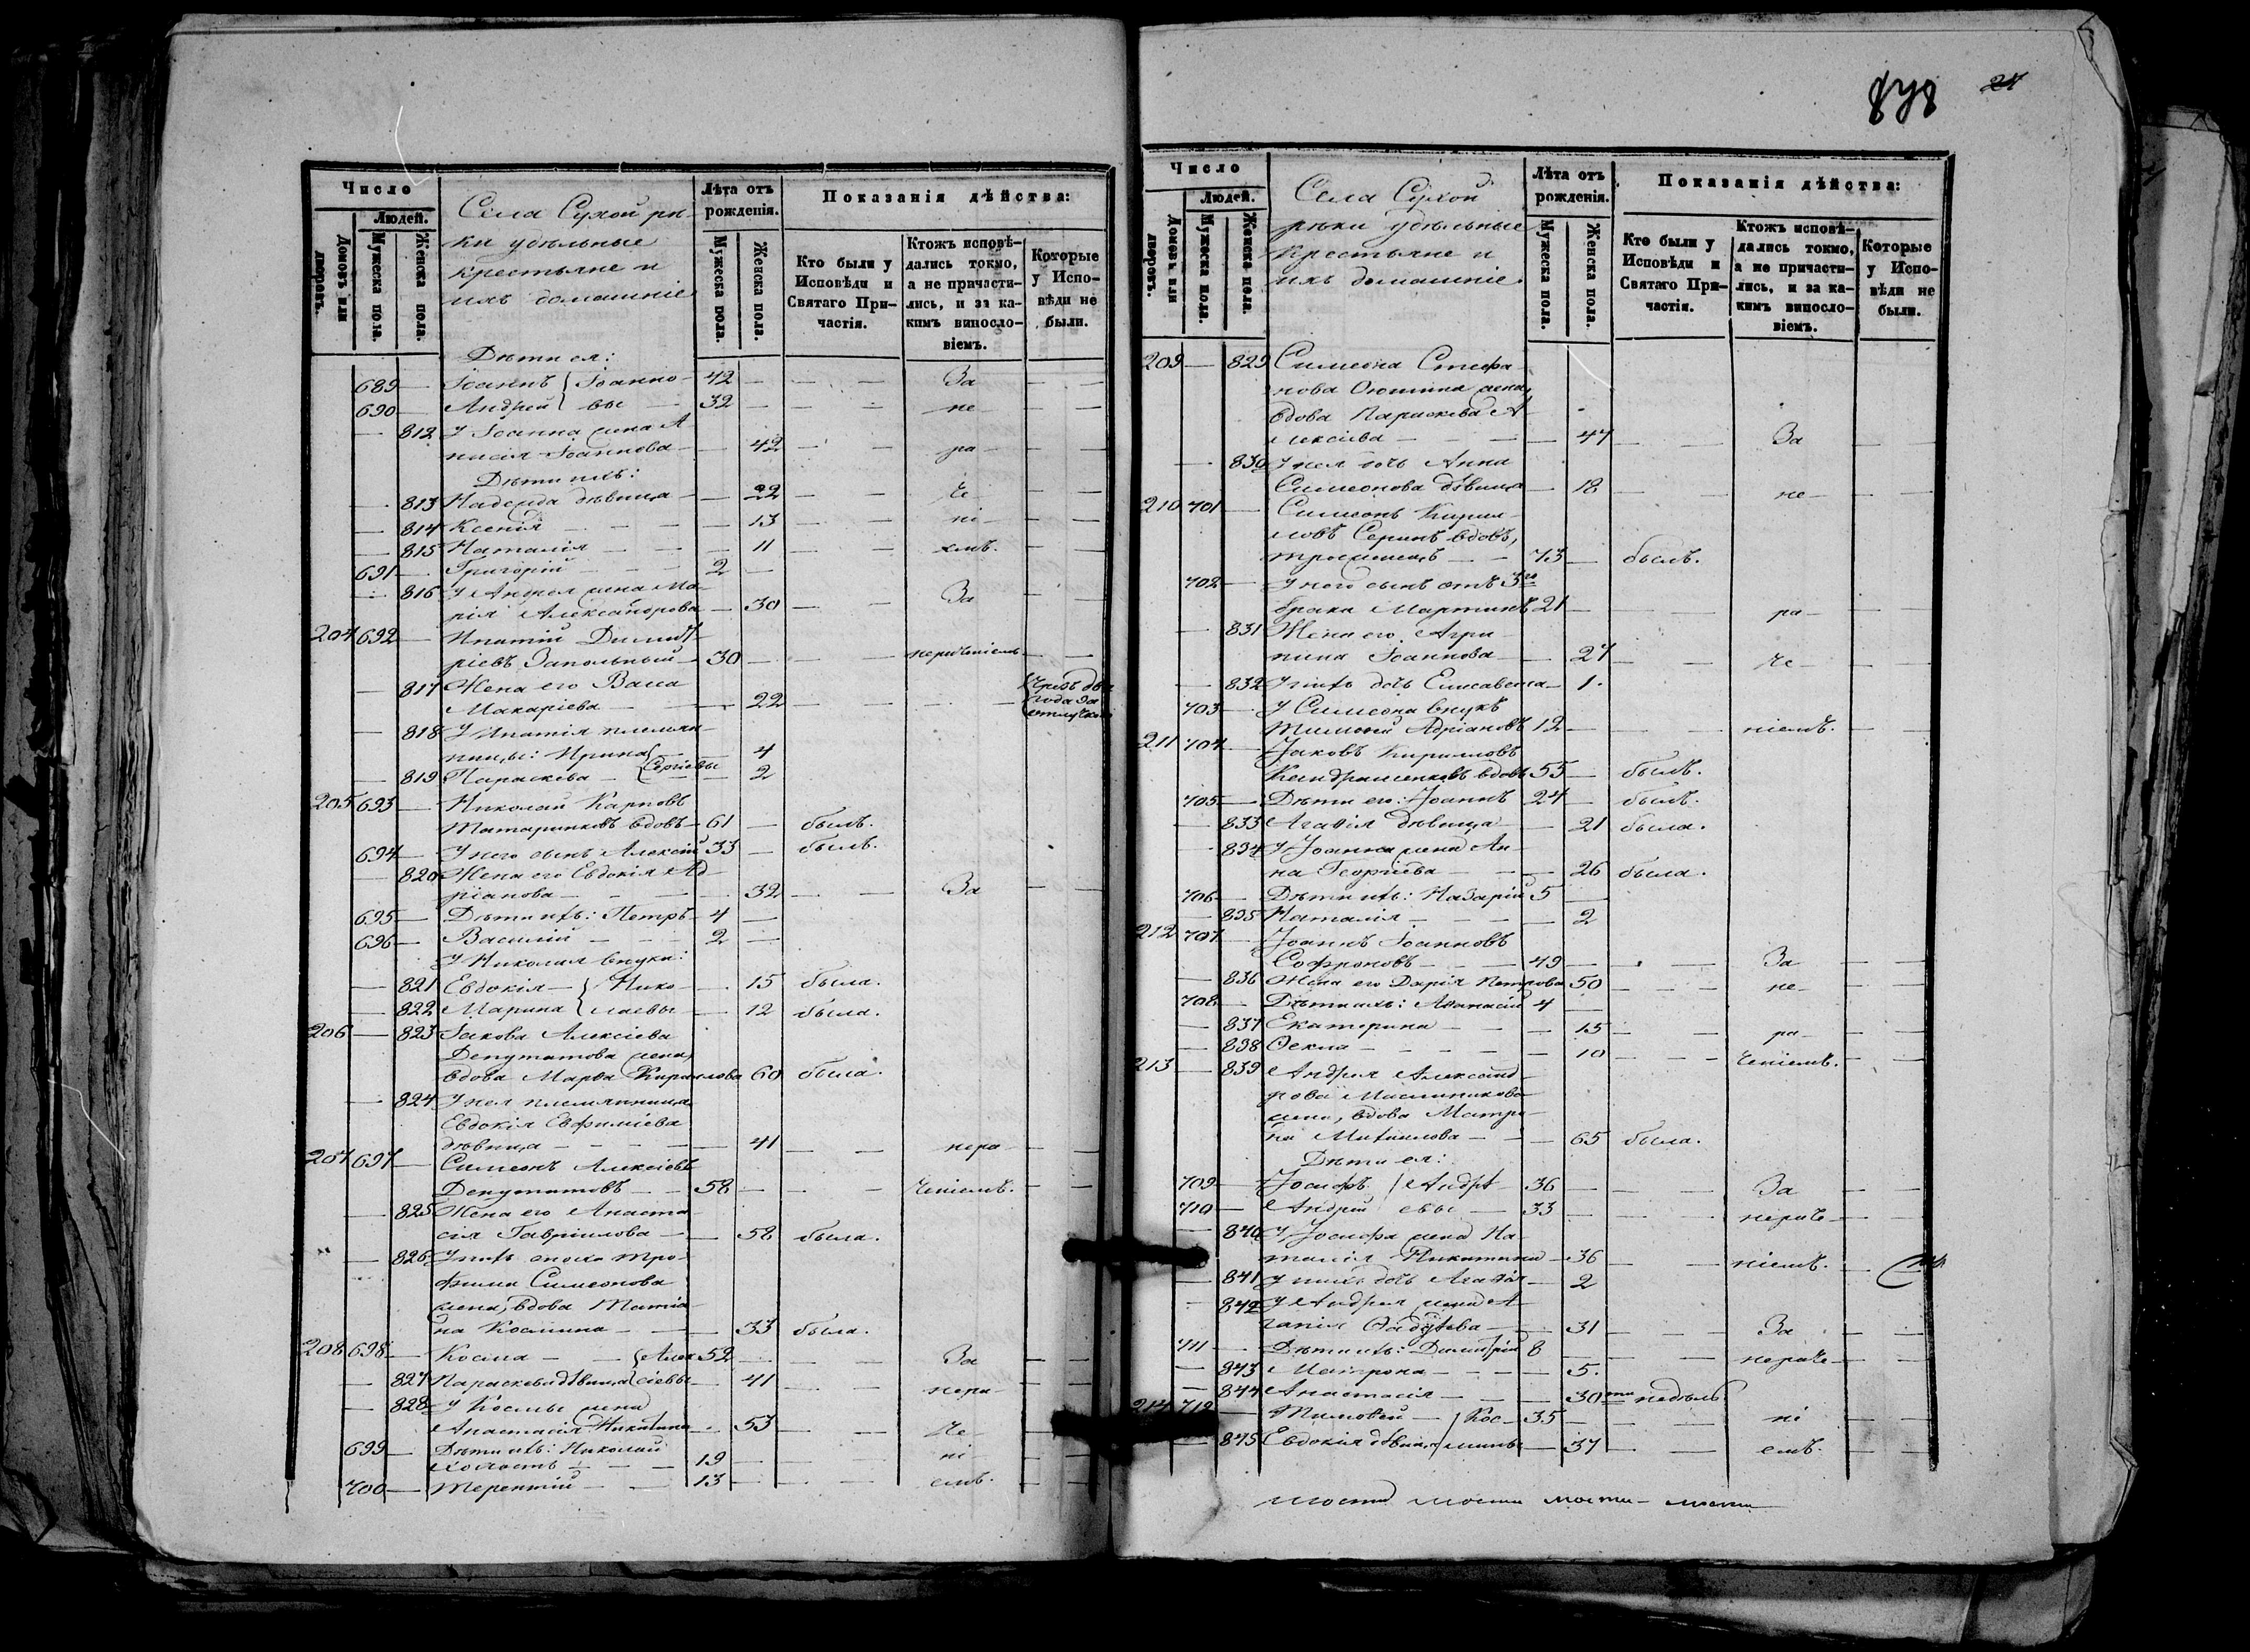 Число
Людей.
Домовъ или дворовъ.
Мужеска пола.
Женска пола.
Села Сухой рѣ-
ки удѣльные
крестьяне и
ихъ домашніе
Лѣта отъ рожденія.
Мужеска пола.
Женска пола.
Показанія дѣйства:
Кто были у Исповѣди и Святаго При-частія.
Ктожъ исповѣ-дались токмо, а не причасти-лись, и за ка-кимъ винословіемъ.
Которые у Испо-вѣди не были.
Дѣти ея:
689 — Іоаннъ { Іоанно- 42 — — — За — —
690 — Андрей { вы — 32 — — — не — —
— 812 У Іоанна жена А
нисія Іоаннова — — 42 — — ра — —
Дѣти ихъ:
— 813 Надежда дѣвица — — 22 — — че — —
— 814 Ксенія — — — — 13 — — ні — —
— 815 Наталія — — — 11 — — емъ. — —
691 — Григорій — — — 2 —
— 816 У Андрея жена Ма-
рія Александрова — 30 — — За — —
204 692 — Ипатій Димит-
ріевъ Запольный — 30 — — — нераченіемъ — —
— 817 Жена его Васса
Макаріева — — — 22 — — — Чрезъ два года за отлучкой
— 818 У Ипатія племян-
ницы: Ирина { — — 4
— 819 Параскева — { Сергіевы — 2
205 693 — Николай Карповъ
Татаринковъ вдовъ — 61 — былъ.
694 — У него сынъ Алексій 33 — былъ.
— 820 Жена его Евдокія Ад-
ріанова — — — 32 — — За — —
695 — Дѣти ихъ: Петръ — 4 —
696 — Василій — — — 2 —
У Николая внуки:
— 821 Евдокія — { Нико- — 15 была.
— 822 Марина { лаевы — 12 была.
206 — 823 Іакова Алексіева
Депутатова жена,
вдова Марѳа Кириллова 60 была.
— 824 У нея племянница
Евдокія Евфиміева
дѣвица — — — — 41 — — нера —
207 697 — Симеонъ Алексіевъ
Депутатовъ — — 58 — — — ченіемъ. — —
— 825 Жена его Анаста-
сія Гавріилова — — 58 была.
— 826 У нихъ сноха Тро-
фима Симеонова
жена, вдова Татіа-
на Космина — — — 33 была.
208 698 — Косма — — { Алек 52 — — — За — —
— 827 Параскева дѣвица { сіевы — 41 — — нера — —
— 828 У Космы жена
Анастасія Никитина — 53 — — че — —
699 — Дѣти ихъ: Николай
холостъ — — — 19 — — ні — —
700 — Терентій — — 13 — — емъ. — —
848 21
Число
Людей.
Домовъ или дворовъ.
Мужеска пола.
Женска пола.
Села Сухой
рѣки удѣльные
крестьяне и
ихъ домашніе
Лѣта отъ рожденія.
Мужеска пола.
Женска пола.
Показанія дѣйства:
Кто были у Исповѣди и Святаго При-частія.
Ктожъ исповѣ-дались токмо, а не причасти-лись, и за ка-кимъ винословіемъ.
Которые у Испо-вѣди не были.
209 — 829 Симеона Стефа-
нова жена,
вдова Параскева А-
лексіева — — — — 47 — — За — —
— 830 У нея дочь Анна
Симеонова дѣвица — 18 — — не — —
210 701 — Симеонъ Кирил-
ловъ Серинъ вдовъ,
— — 73 — былъ.
702 — У него сынъ отъ 3го
брака Мартинъ 21 — — — ра — —
— 831 Жена его Агри-
пина Іоаннова — — 27 — — че — —
— 832 У нихъ дочь Елисавета — 1.
703 — У Симеона внукъ
Тимоѳей Адріановъ 12 — — — ніемъ. — —
211 704 — Іаковъ Кирилловъ
вдовъ 55 — былъ.
705 — Дѣти его: Іоаннъ 24 — былъ.
— 833 Агаѳія дѣвица — — 21 была.
— 834 У Іоанна жена Ан-
на Георгіева — — — 26 была.
706 — Дѣти ихъ: Назарій 5 —
— 835 Наталія — — — — 2
212 707 — Іоаннъ Іоанновъ
Софроновъ — — — 49 — — — За — —
— 836 Жена его Дарія Петрова 50 — — не — —
708 — Дѣти ихъ: Аѳанасій 4 —
— 837 Екатерина — — — 15 — — ра — —
— 838 Ѳекла — — — — 10 — — ченіемъ. — —
213 — 839 Андрея Александ-
рова Масленникова
жена, вдова Матро-
на Михаилова — — — 65 была.
Дѣти ея:
709 — Іосифъ { Андрѣ- 36 — — — За — —
710 — Андрей { евы — 33 — — — нераче — —
— 840 У Іосифа жена На-
талія Никитина — 36 — — ніемъ. — —
— 841 У нихъ дочь Агаѳія — 2
— 842 У Андрея жена А-
гапія Ѳаддѣева — — 31 — — За — —
711 — Дѣти ихъ: Димитрій 8 — — — нераче — —
— 843 Матрона — — — — 5.
— 844 Анастасія — — — 30ти недѣль.
214 712 — Тимоѳей — { Кос- 35 — — — ні — —
— 845 Евдокія дѣвица { мины — 37 — — емъ. — —